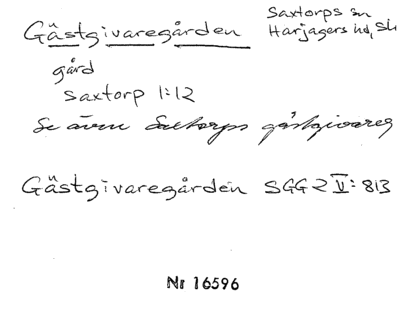 Gästgivaregården Saxtorps sn
Harjagers hd, Sk
gård
Saxtorp 1:12
Se även Saxtorps gästgivareg
Gästgivaregården SGG 2 V: 813
Nr 16596